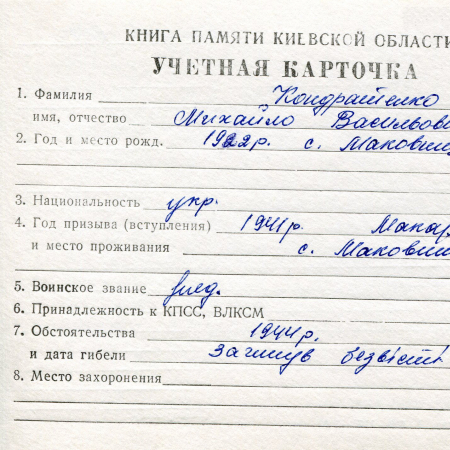 КНИГА ПАМЯТИ КИЕВСКОЙ ОБЛАСТИ
УЧЕТНАЯ КАРТОЧКА
1. Фамилия Кондратенко
имя, отчество Михайло Васильови
2. Год и место рожд. 1922р. с. Маковищ
3. Национальность укр.
4. Год призыва (вступления) 1941р. Макар
и место проживания с. Маковищ
5. Воинское звание
6. Принадлежность к КПСС, ВЛКСМ
7. Обстоятельства 1944р.
и дата гибели Загинув безвісті
8. Место захоронения